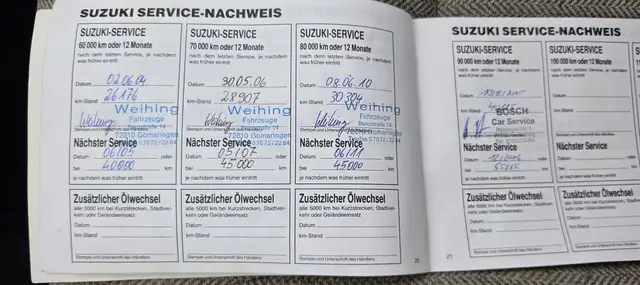 SUZUKI SERVICE-NACHWEIS
SUZUKI-SERVICE
60 000 km oder 12 Monate
nach dem letzten Service, je nachdem
was früher eintritt
Datum 02.06.04
km-Stand 26176
Weihing
Fahrzeuge
Benzstraße 14
72810 Gomaringen
Stempel und Unterschrift des Händlers
Nächster Service
Datum 06/05 oder
bei 40000 km
je nachdem was früher eintritt
Zusätzlicher Ölwechsel
alle 5000 km bei Kurzstrecken, Stadtver-
kehr oder Geländeeinsatz
Datum
km-Stand
Stempel und Unterschrift des Händlers
SUZUKI-SERVICE
70 000 km oder 12 Monate
nach dem letzten Service, je nachdem
was früher eintritt
Datum 30.05.06
km-Stand 28907
Weihing
Fahrzeuge
Benzstraße 14
72810 Gomaringen
07072/2264
Stempel und Unterschrift des Händlers
Nächster Service
Datum 05/07 oder
bei 45000 km
je nachdem was früher eintritt
Zusätzlicher Ölwechsel
alle 5000 km bei Kurzstrecken, Stadtver-
kehr oder Geländeeinsatz
Datum
km-Stand
Stempel und Unterschrift des Händlers
SUZUKI-SERVICE
80 000 km oder 12 Monate
nach dem letzten Service, je nachdem
was früher eintritt
Datum 08.06.10
km-Stand 30304
Weihing
Fahrzeuge
Benzstraße 14
72810 Gomaringen
Telefon 07072/2264
Stempel und Unterschrift des Händlers
Nächster Service
Datum 06/11 oder
bei 45000 km
je nachdem was früher eintritt
Zusätzlicher Ölwechsel
alle 5000 km bei Kurzstrecken, Stadtver-
kehr oder Geländeeinsatz
Datum
km-Stand
Stempel und Unterschrift des Händlers
20
SUZUKI SERVICE-NACHWEIS
SUZUKI-SERVICE
90 000 km oder 12 Monate
nach dem letzten Service, je nachdem
was früher eintritt
Datum
km-Stand
BOSCH
Car Service
Nächster Service
Datum oder
bei km
je nachdem was früher eintritt
Zusätzlicher Ölwechsel
alle 5000 km bei Kurzstrecken, Stadtver-
kehr oder Geländeeinsatz
Datum
km-Stand
Stempel und Unterschrift des Händlers
SUZUKI-SERVICE
100 000 km oder 12 Monate
nach dem letzten Service, je nachdem
was früher eintritt
Datum
km-Stand
Nächster Service
Datum
bei
je nachdem was früher eintritt
Zusätzlicher Ölwechsel
Datum
km-Stand
21